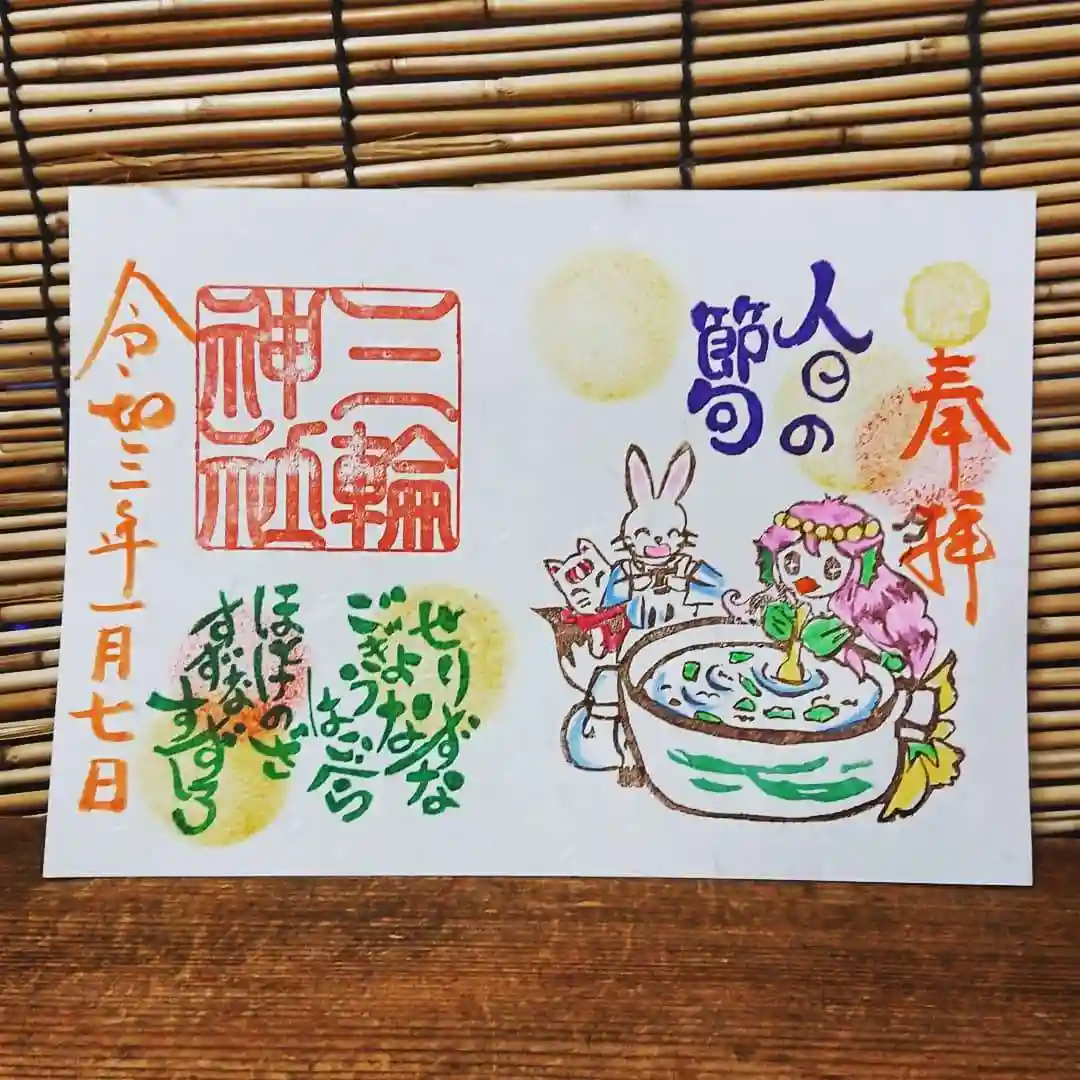 奉拝
人日の
節句
三輪
神社
せりなずな
ごぎょう
はこべら
ほとけのざ
すずな
すずしろ
令和三年一月七日